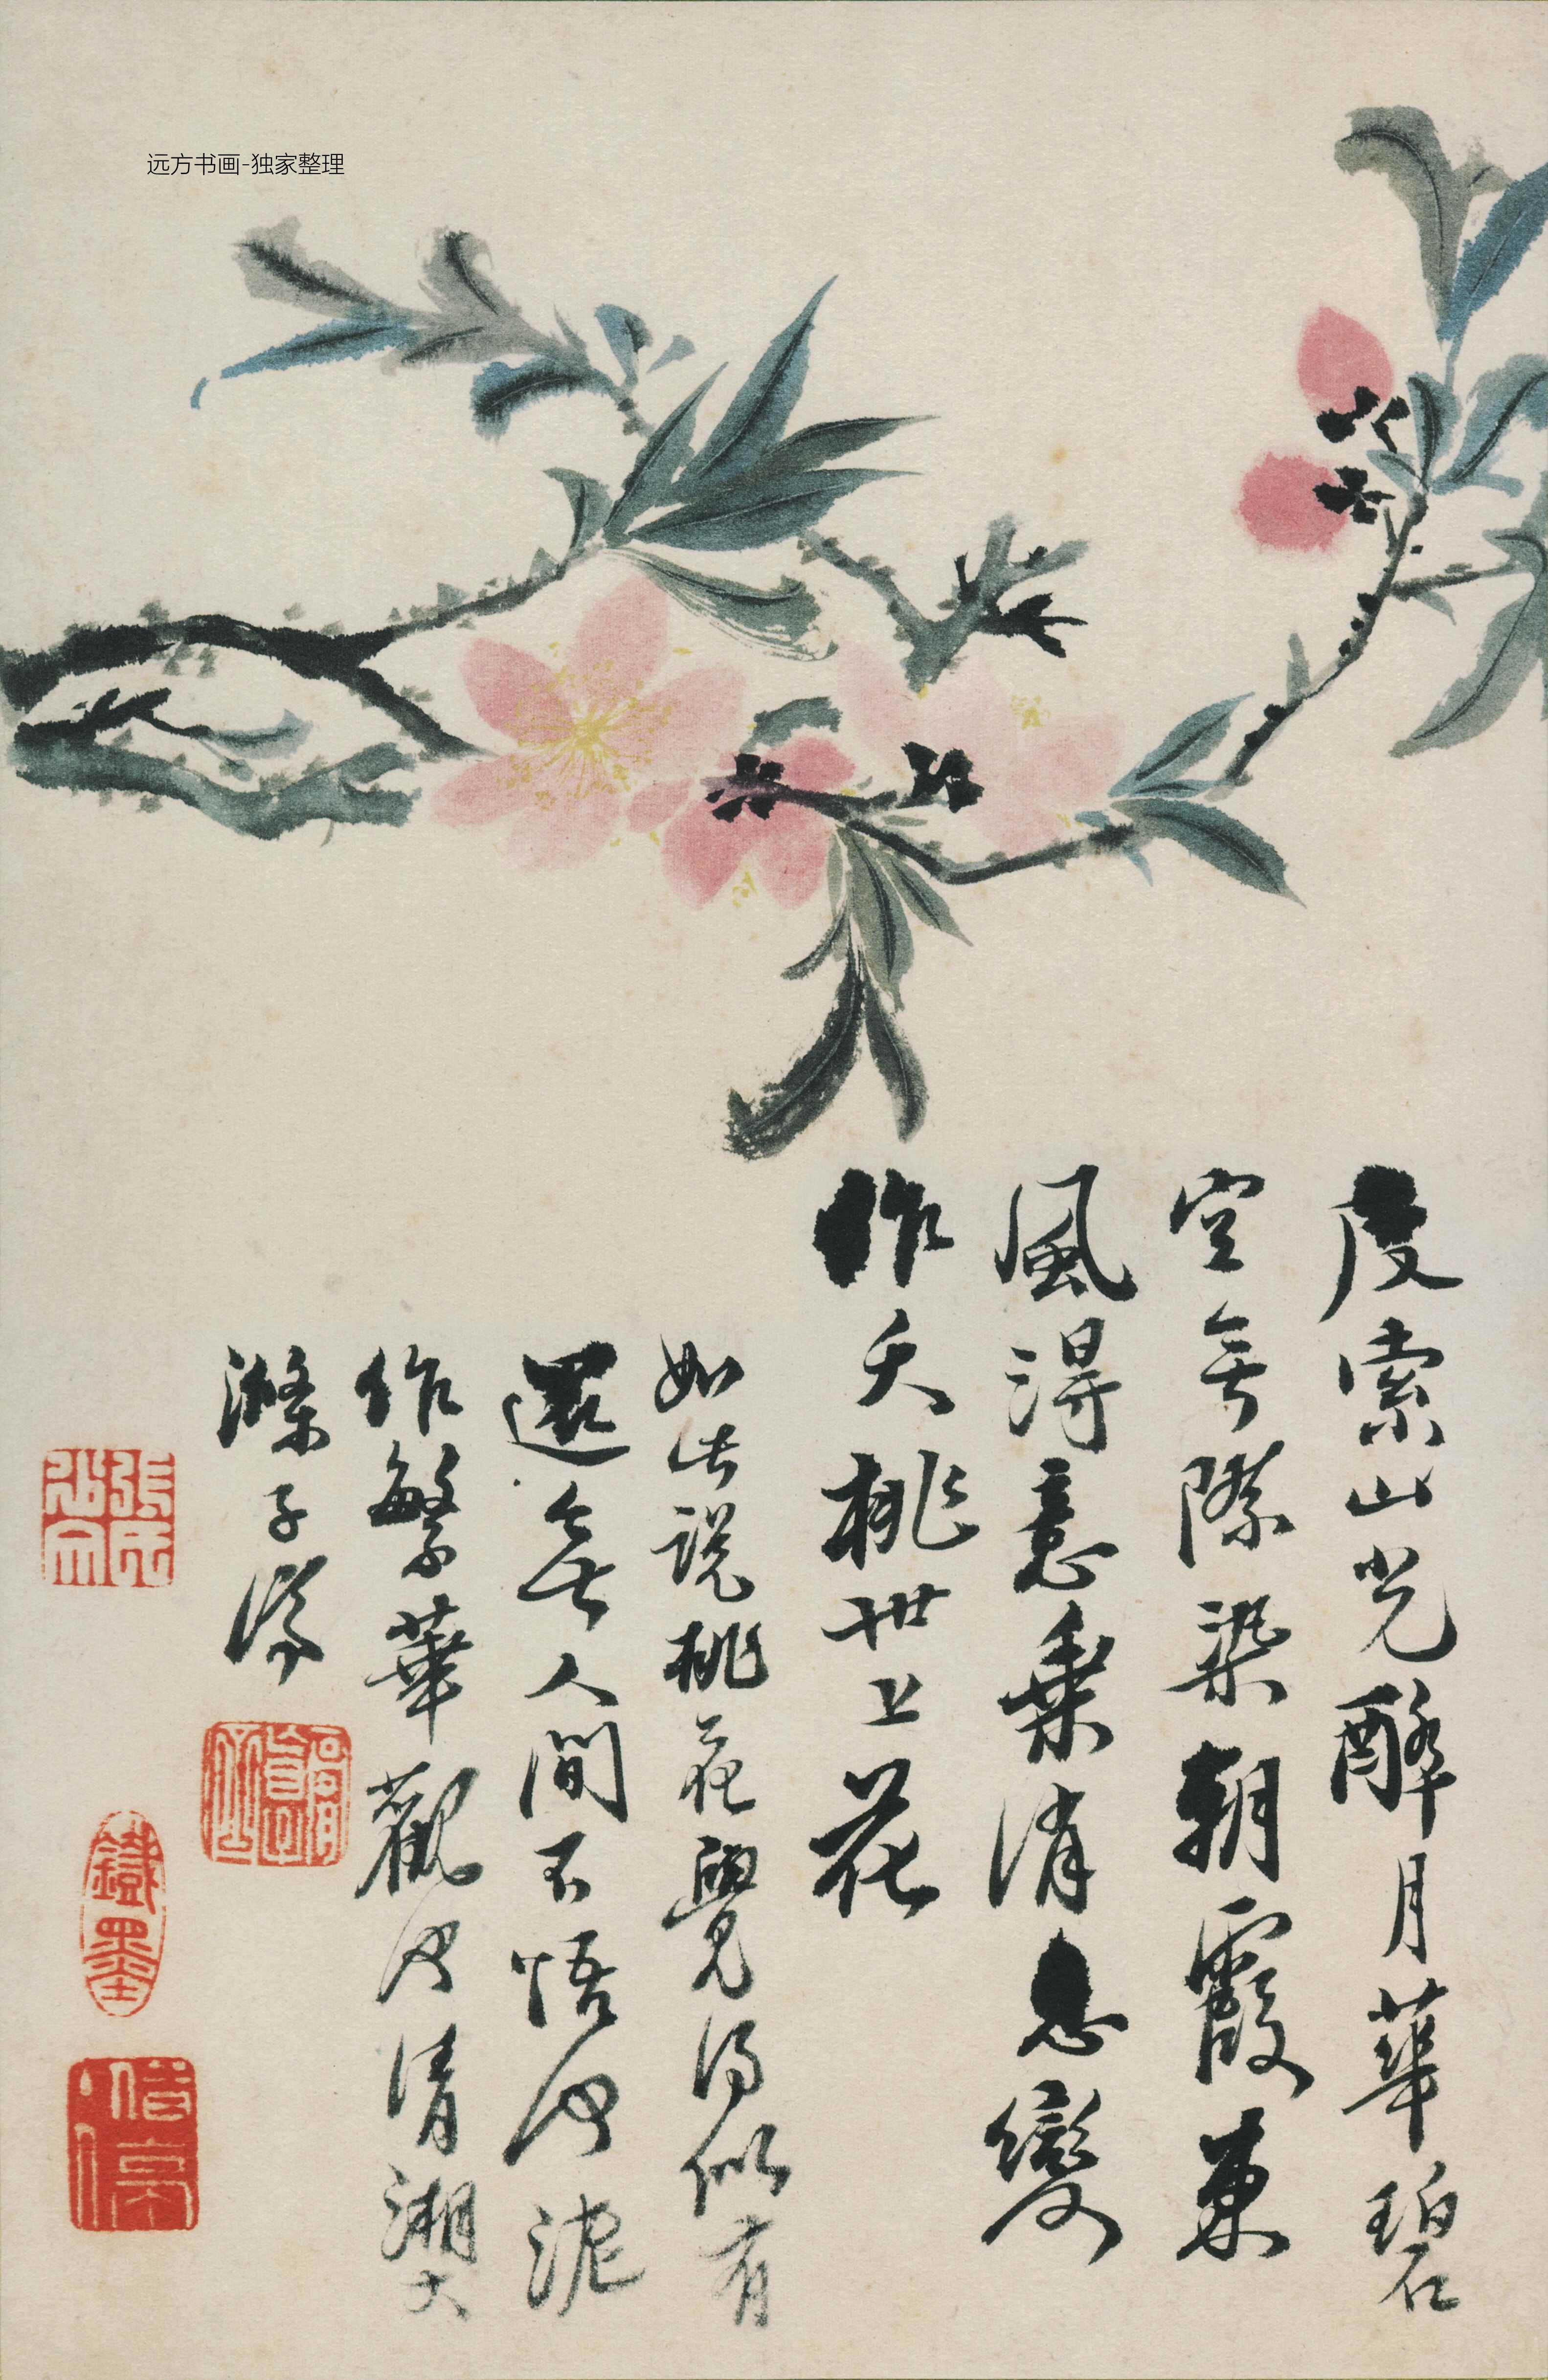 远方书画-独家整理
度索山光醉月華碧
空無際染朝霞東
風得意乘消息變
作夭桃世上花
如此說桃花覺得似有
還無人間不悟何泥
作繁華觀何清湘大
滌子濟
張氏
鐵墨